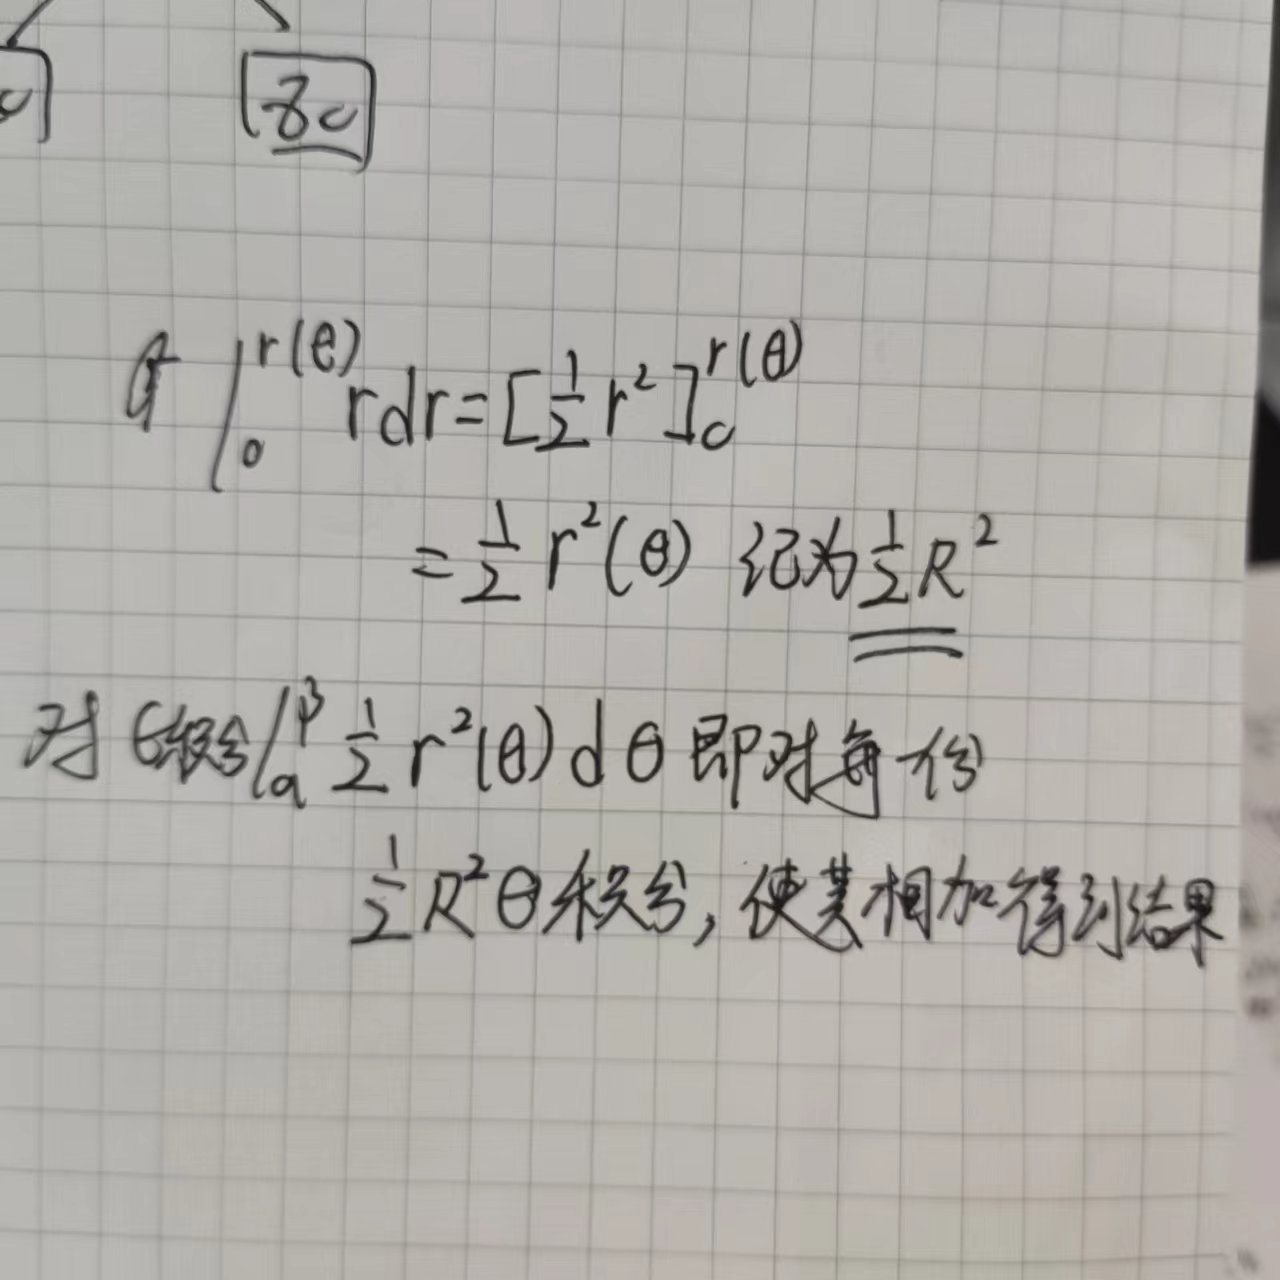 ∫₀^{r(θ)} r dr = [½ r²]₀^{r(θ)}
= ½ r²(θ) 记为 ½ R²
对 θ积分 ∫_α^β ½ r²(θ) dθ 即对每一份
½ R² θ 积分, 使其相加得到结果